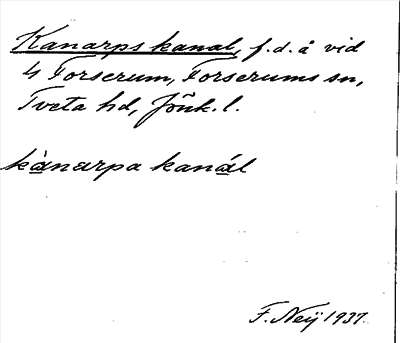 Kanarps kanal, f.d. å vid
4 Forserum, Forserums sn,
Tveta hd, Jönk. l.
kànarpa kanál
F. Neij 1937.